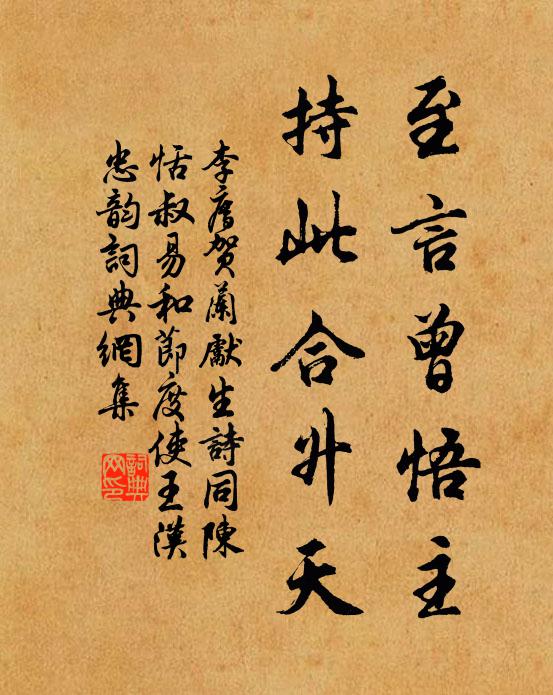 至言曾悟主
持此合升天
李廌賀蘭獻生詩同陳
恬叔易和節度使王漢
忠韵詞典網集
詞典
网印